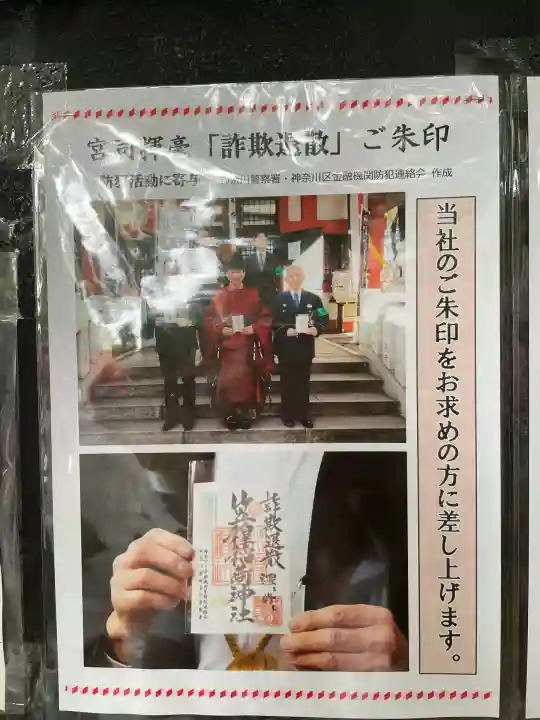 宮司揮毫「詐欺退散」ご朱印
防犯活動に寄与
警察署・神奈川区金融機関防犯連絡会 作成
当社のご朱印をお求めの方に差し上げます。
詐欺退散
稲荷神社